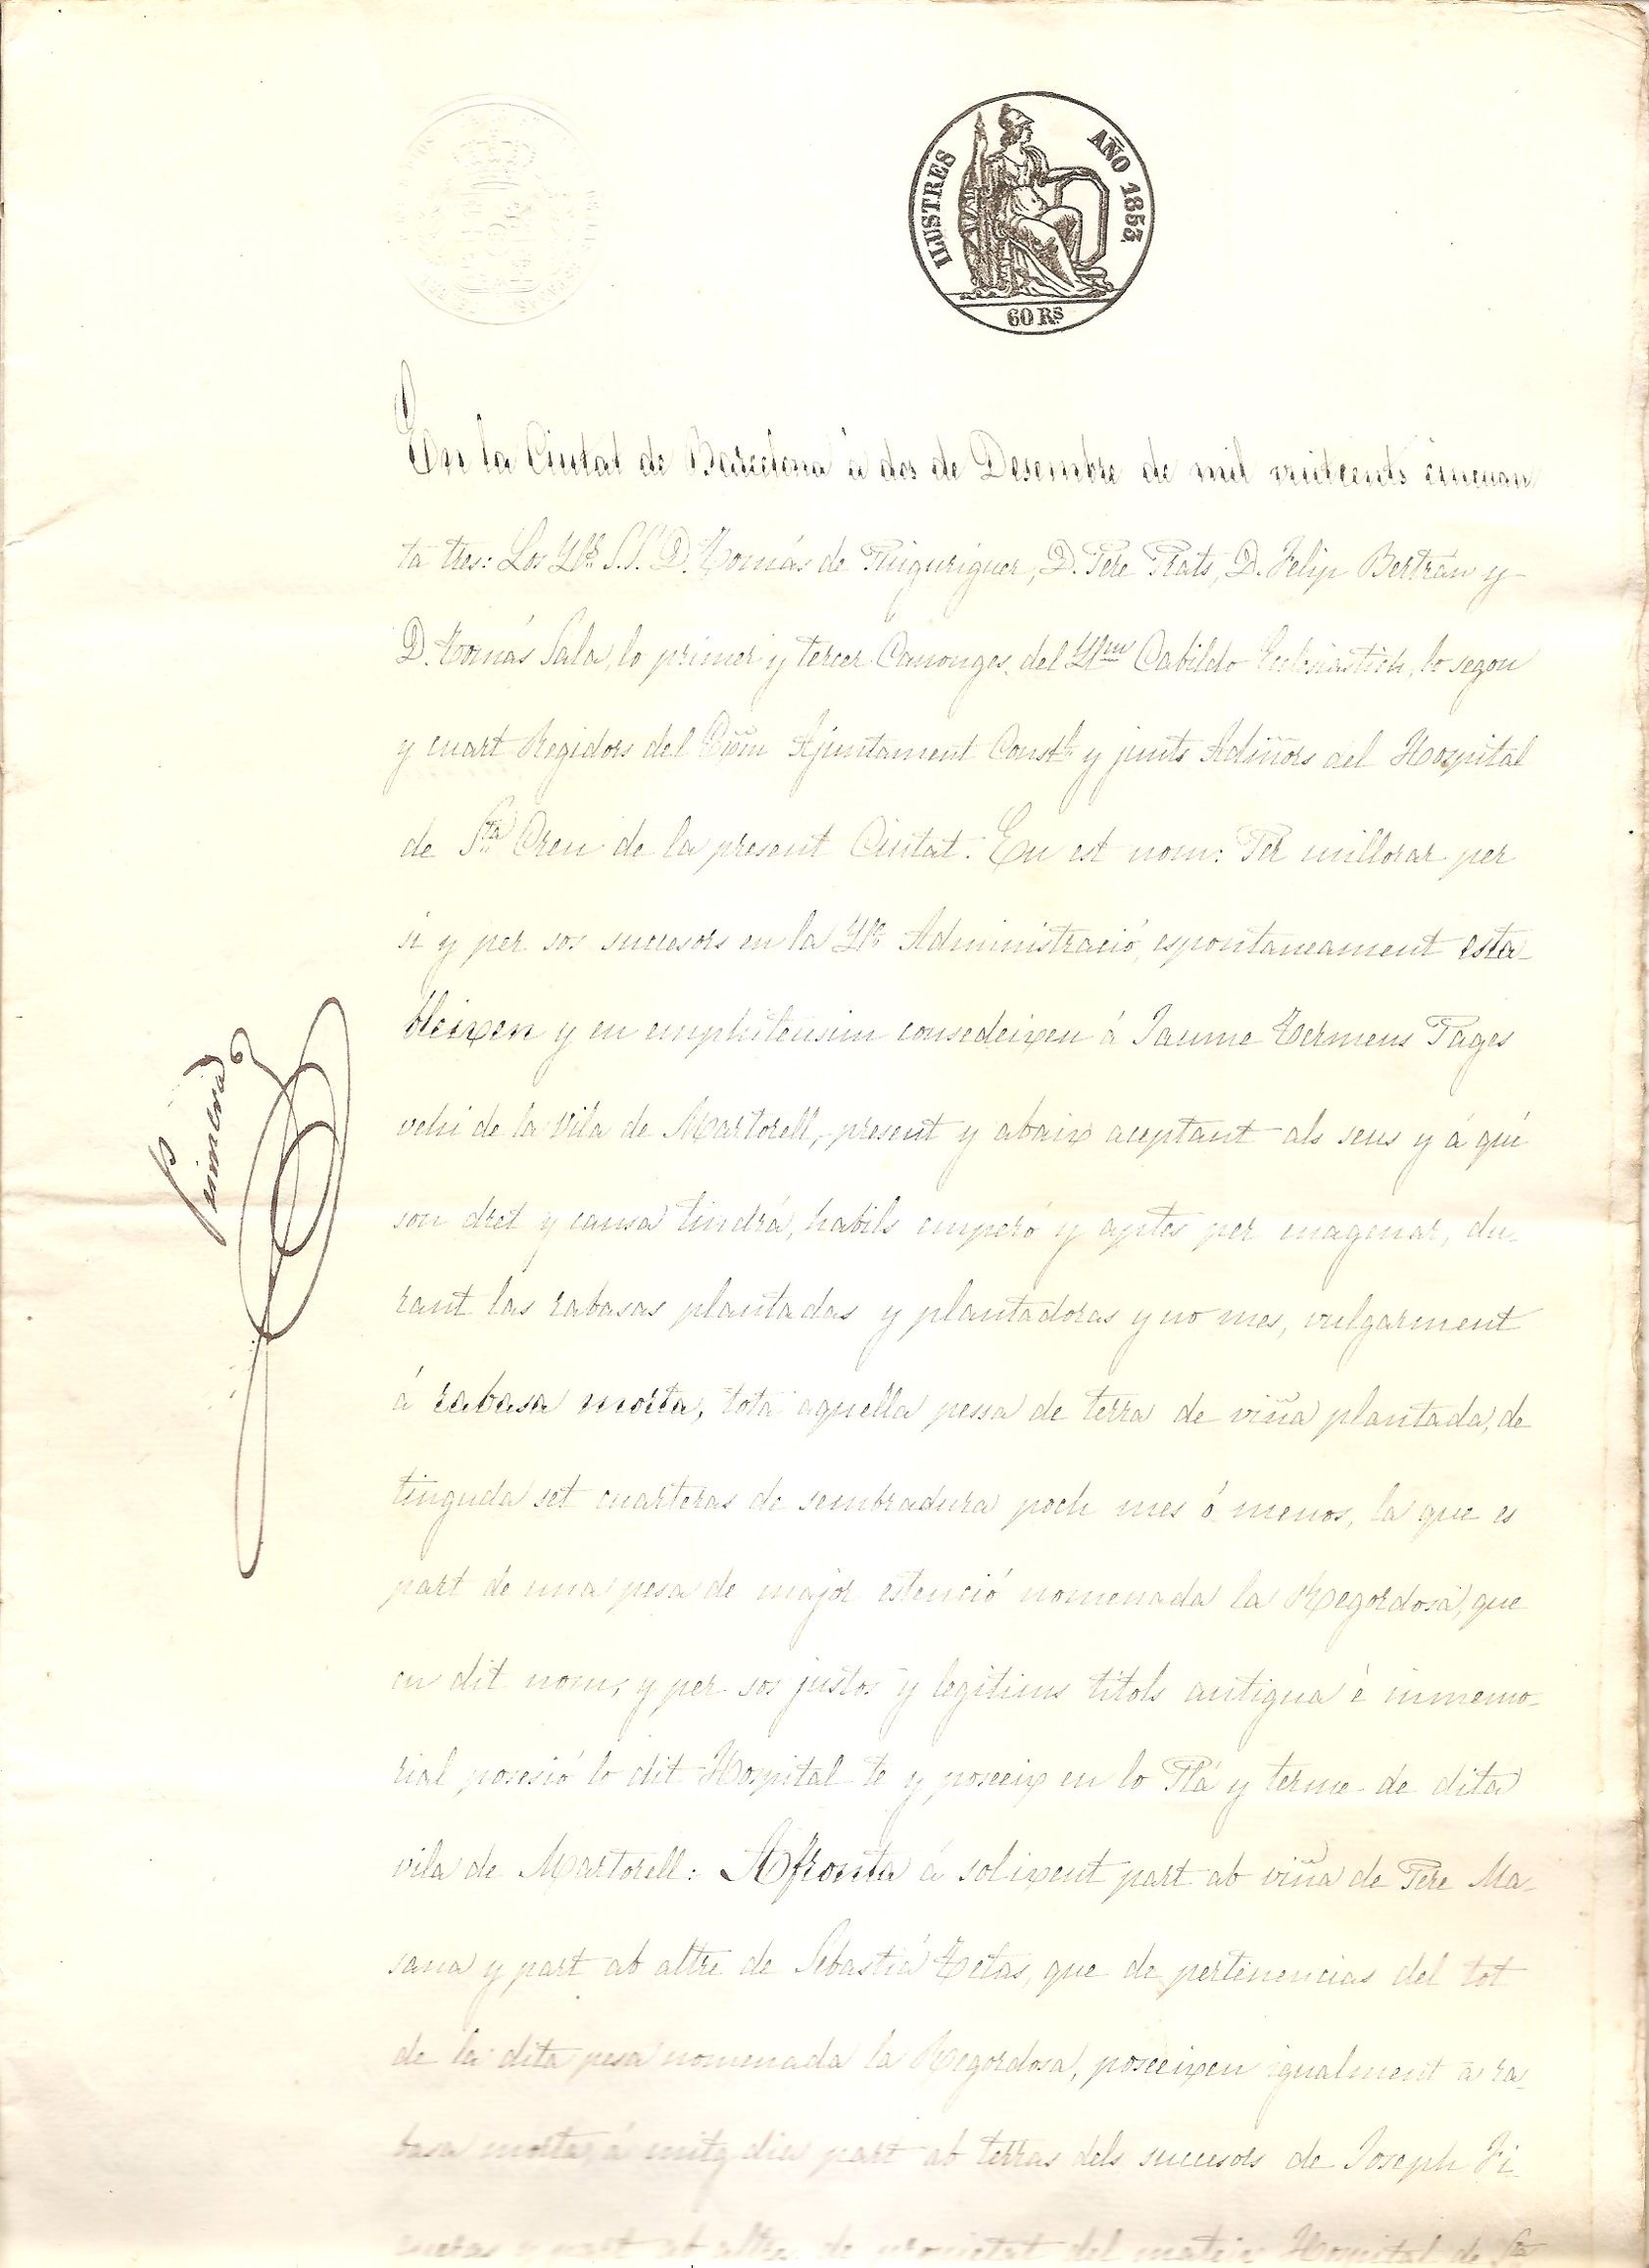 ILUSTRES
AÑO 1853
60 Rs
En la Ciutat de Barcelona á dos de Desembre de mil vuitcents cincuan
ta tres: Los Yls. S.S. D. Tomás de Puiguriguer, D. Pere Prats, D. Felip Bertrán y
D. Tomás Sala, lo primer y tercer Canonges del Ylm Cabildo Eclesiastich, lo segon
y cuart Regidors del Exm Ajuntament Constl. y junts Adiñors del Hospital
de Sta. Creu de la present Ciutat. En est nom: Per millorar per
si y per sos succesors en la Ylt Administració, espontaneament esta-
bleixen y en emphiteusim consedeixen á Jaume Termens Pages
vehi de la vila de Martorell, present y abaix aceptant als seus y á qui
son dret y causa tindrá, habils emperó y aptes per enagenar, du-
rant las rabasas plantadas y plantadoras y no mes, vulgarment
á rabasa morta, tota aquella pessa de terra de viña plantada, de
tinguda set cuarteras de sembradura poch mes ó menos, la que es
part de una pesa de major estenció nomenada la Regordosa, que
en dit nom, y per sos justos y legitims titols antigua é inmemo-
rial posesió lo dit Hospital te y poseeix en lo Plá y terme de dita
vila de Martorell: Afronta á solixent part ab viña de Pere Ma-
sana y part ab altre de Sebastiá Tetas, que de pertinencias del tot
de la dita pesa nomenada la Regordosa, poseeixen igualment á ra-
basa morta, á mitg dia part ab terras dels succesors de Joseph Fi-
gueras y part ab altre de propietat del mateix Hospital de Sta